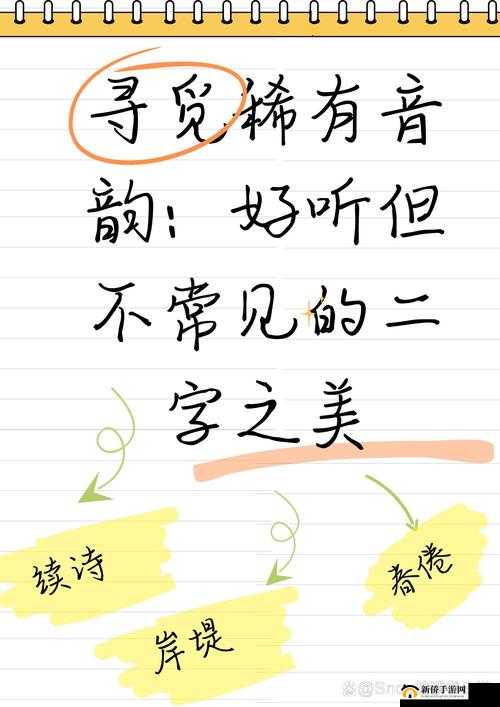 寻觅稀有音
韵：好听但
不常见的二
字之美
续诗
春倦
岸堤
新侨手游网